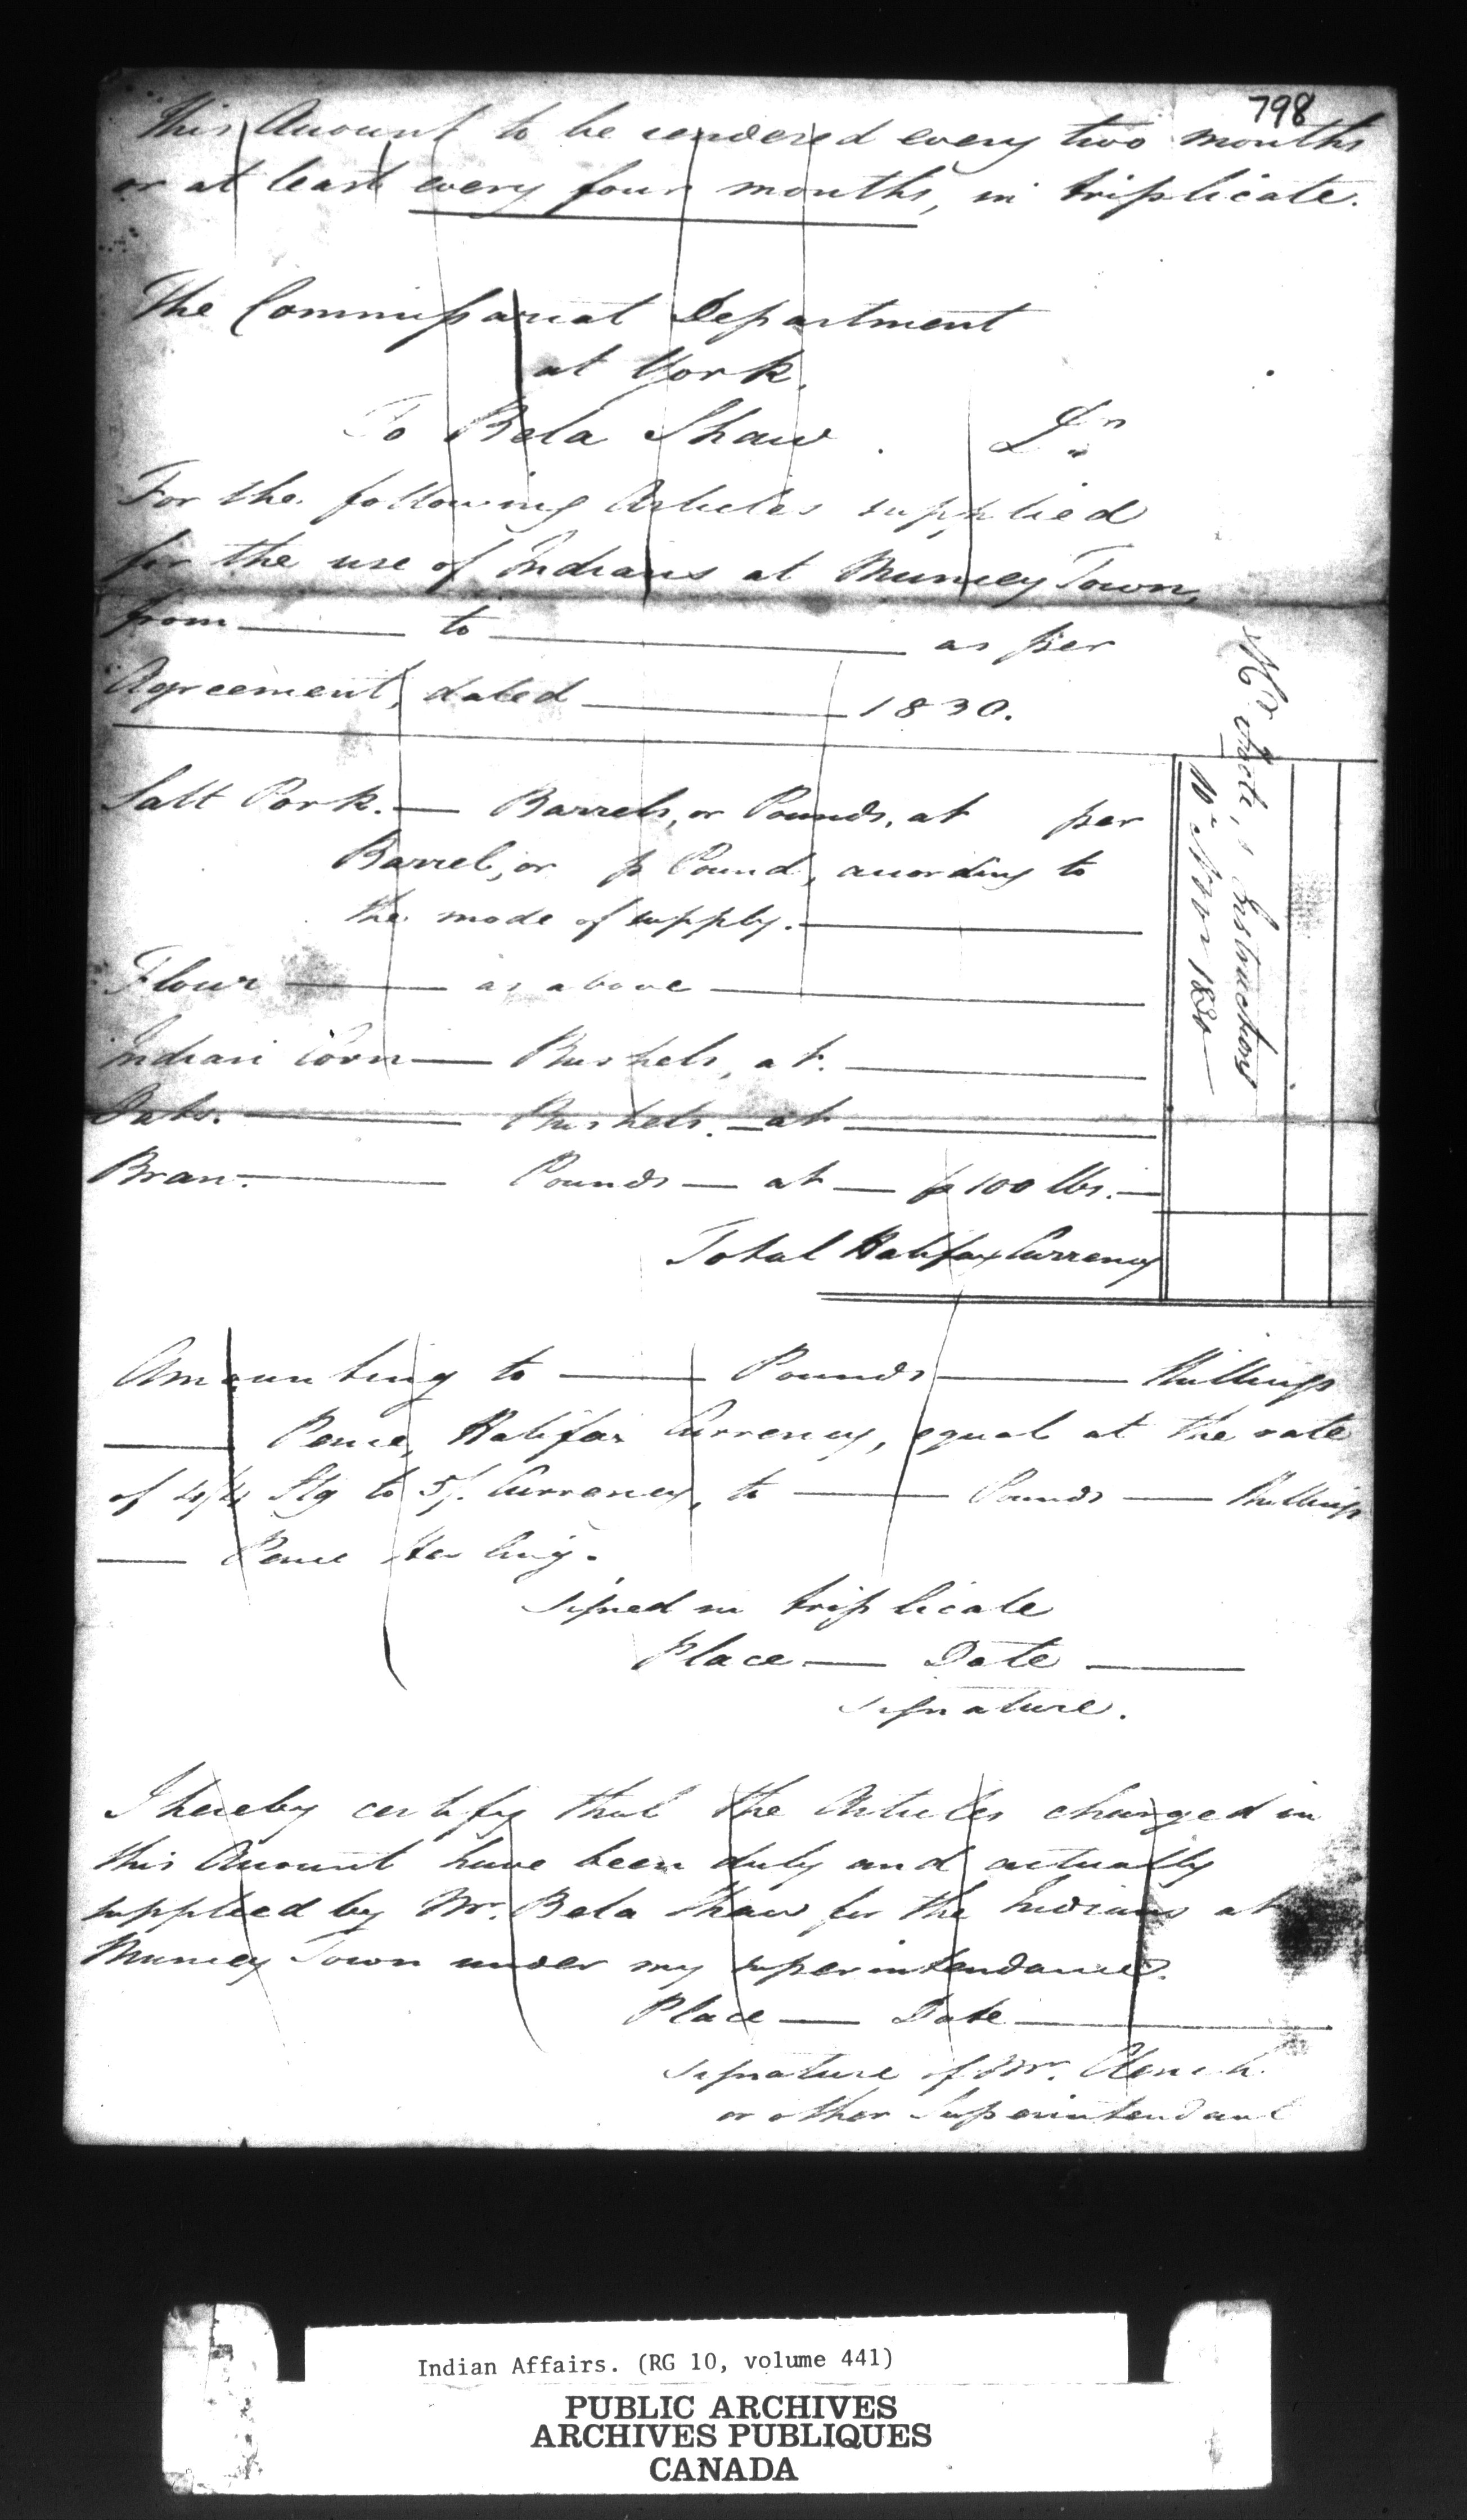 798
This Account to be rendered every two months
or at least every four months, in triplicate.
The Commissariat Department
at York.
To Bela Shaw. Dr.
For the following Articles supplied
for the use of Indians at Muncey Town,
from — to — as per
Agreement, dated — 1830.
Salt Pork. — Barrels, or Pounds, at per
Barrel, or p Pound, according to
the mode of supply. —
Flour — as above —
Indian Corn — Bushels, at. —
Oats. — Bushels. — at —
Bran. — Pounds — at — p 100 lbs. —
Total Halifax Currency
Instructions
10th Novr 1830 —
Amounting to — Pounds — Shillings
— Pence, Halifax Currency, equal at the rate
of 4/4 Stg to 5/. Currency, to — Pounds — Shillings
— Pence Sterling.
Signed in triplicate
Place — Date —
Signature.
I hereby certify that the Articles charged in
this Account have been duly and actually
supplied by Mr. Bela Shaw for the Indians at
Muncey Town under my superintendance.
Place — Date —
Signature of Mr. Clench
or other Superintendant
Indian Affairs. (RG 10, volume 441)
PUBLIC ARCHIVES
ARCHIVES PUBLIQUES
CANADA